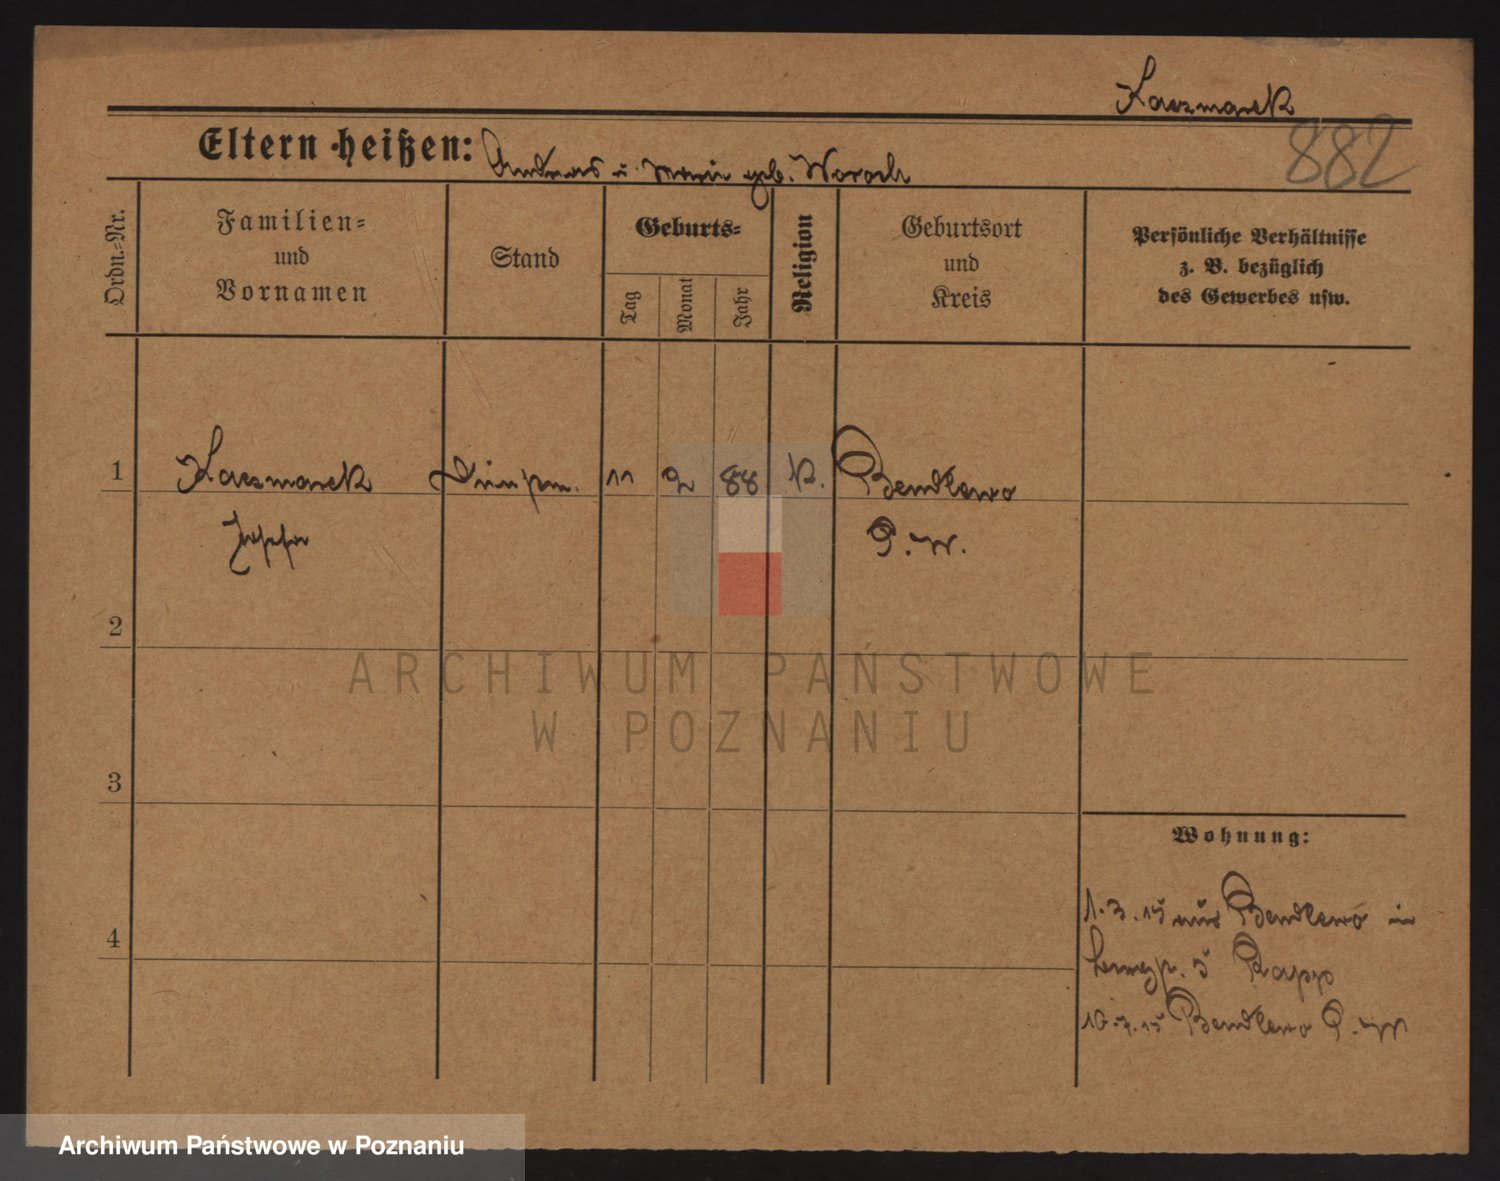 Kaczmarek
882
Eltern heißen: Andreas u. Marie geb. Woroch
Ordn.-Nr.
Familien-
und
Vornamen
Stand
Geburts-
Tag
Monat
Jahr
Religion
Geburtsort
und
Kreis
Persönliche Verhältnisse
z. B. bezüglich
des Gewerbes usw.
1 Kaczmarek 11 2 88 k. Bendlewo
Josefa P. W.
2
ARCHIWUM PAŃSTWOWE
W POZNANIU
3
Wohnung:
1.3.15 aus Bendlewo in
5 Rapp
4
10.7.15 Bendlewo P. W
Archiwum Państwowe w Poznaniu